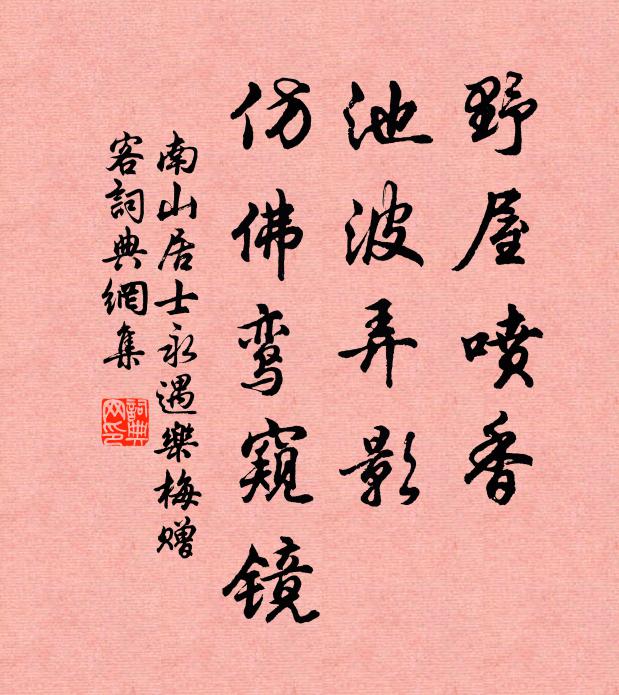 野屋喷香
池波弄影
仿佛鸾窥镜
南山居士永遇樂梅赠
客詞典網集
詞典网印